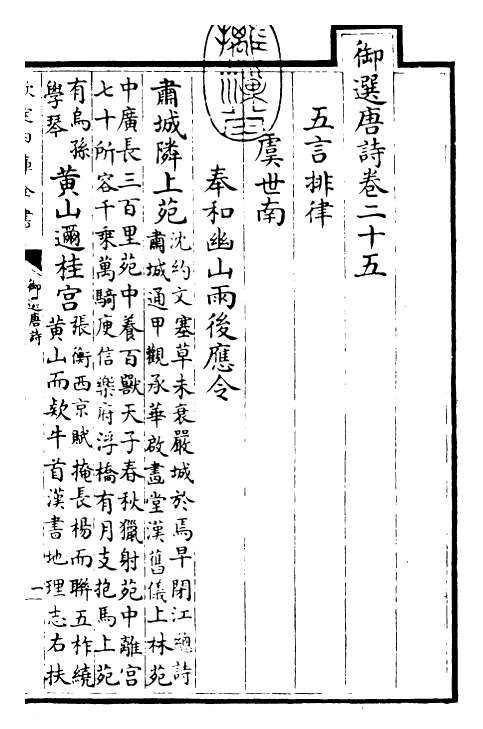 御選唐詩卷二十五
五言排律
虞世南
奉和幽山雨後應令
肅城隣上苑
沈約文塞草未衰嚴城於焉早閉江總詩
肅城通甲觀承華啟畫堂漢舊儀上林苑
中廣長三百里苑中養百獸天子春秋獵射苑中離宫
七十所容千乘萬騎庾信樂府浮橋有月支抱馬上苑
有烏孫
學琴
黄山邇桂宫
張衡西京賦掩長楊而聯五柞繞
黄山而欵牛首漢書地理志右扶
御選唐詩
一